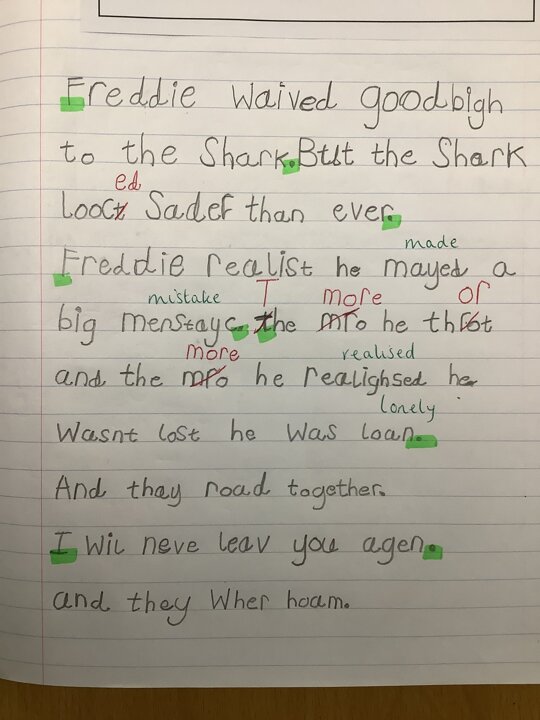 Freddie waived goodbigh
to the Shark. But the Shark
ed
looct Sader than ever.
made
Freddie realist he mayed a
mistake T more or
big menstayc. the mro he throt
more realised
and the mro he realighsed he
lonely
Wasnt lost he was loan.
And thay road together.
I wil neve leav you agen.
and they Wher hoam.